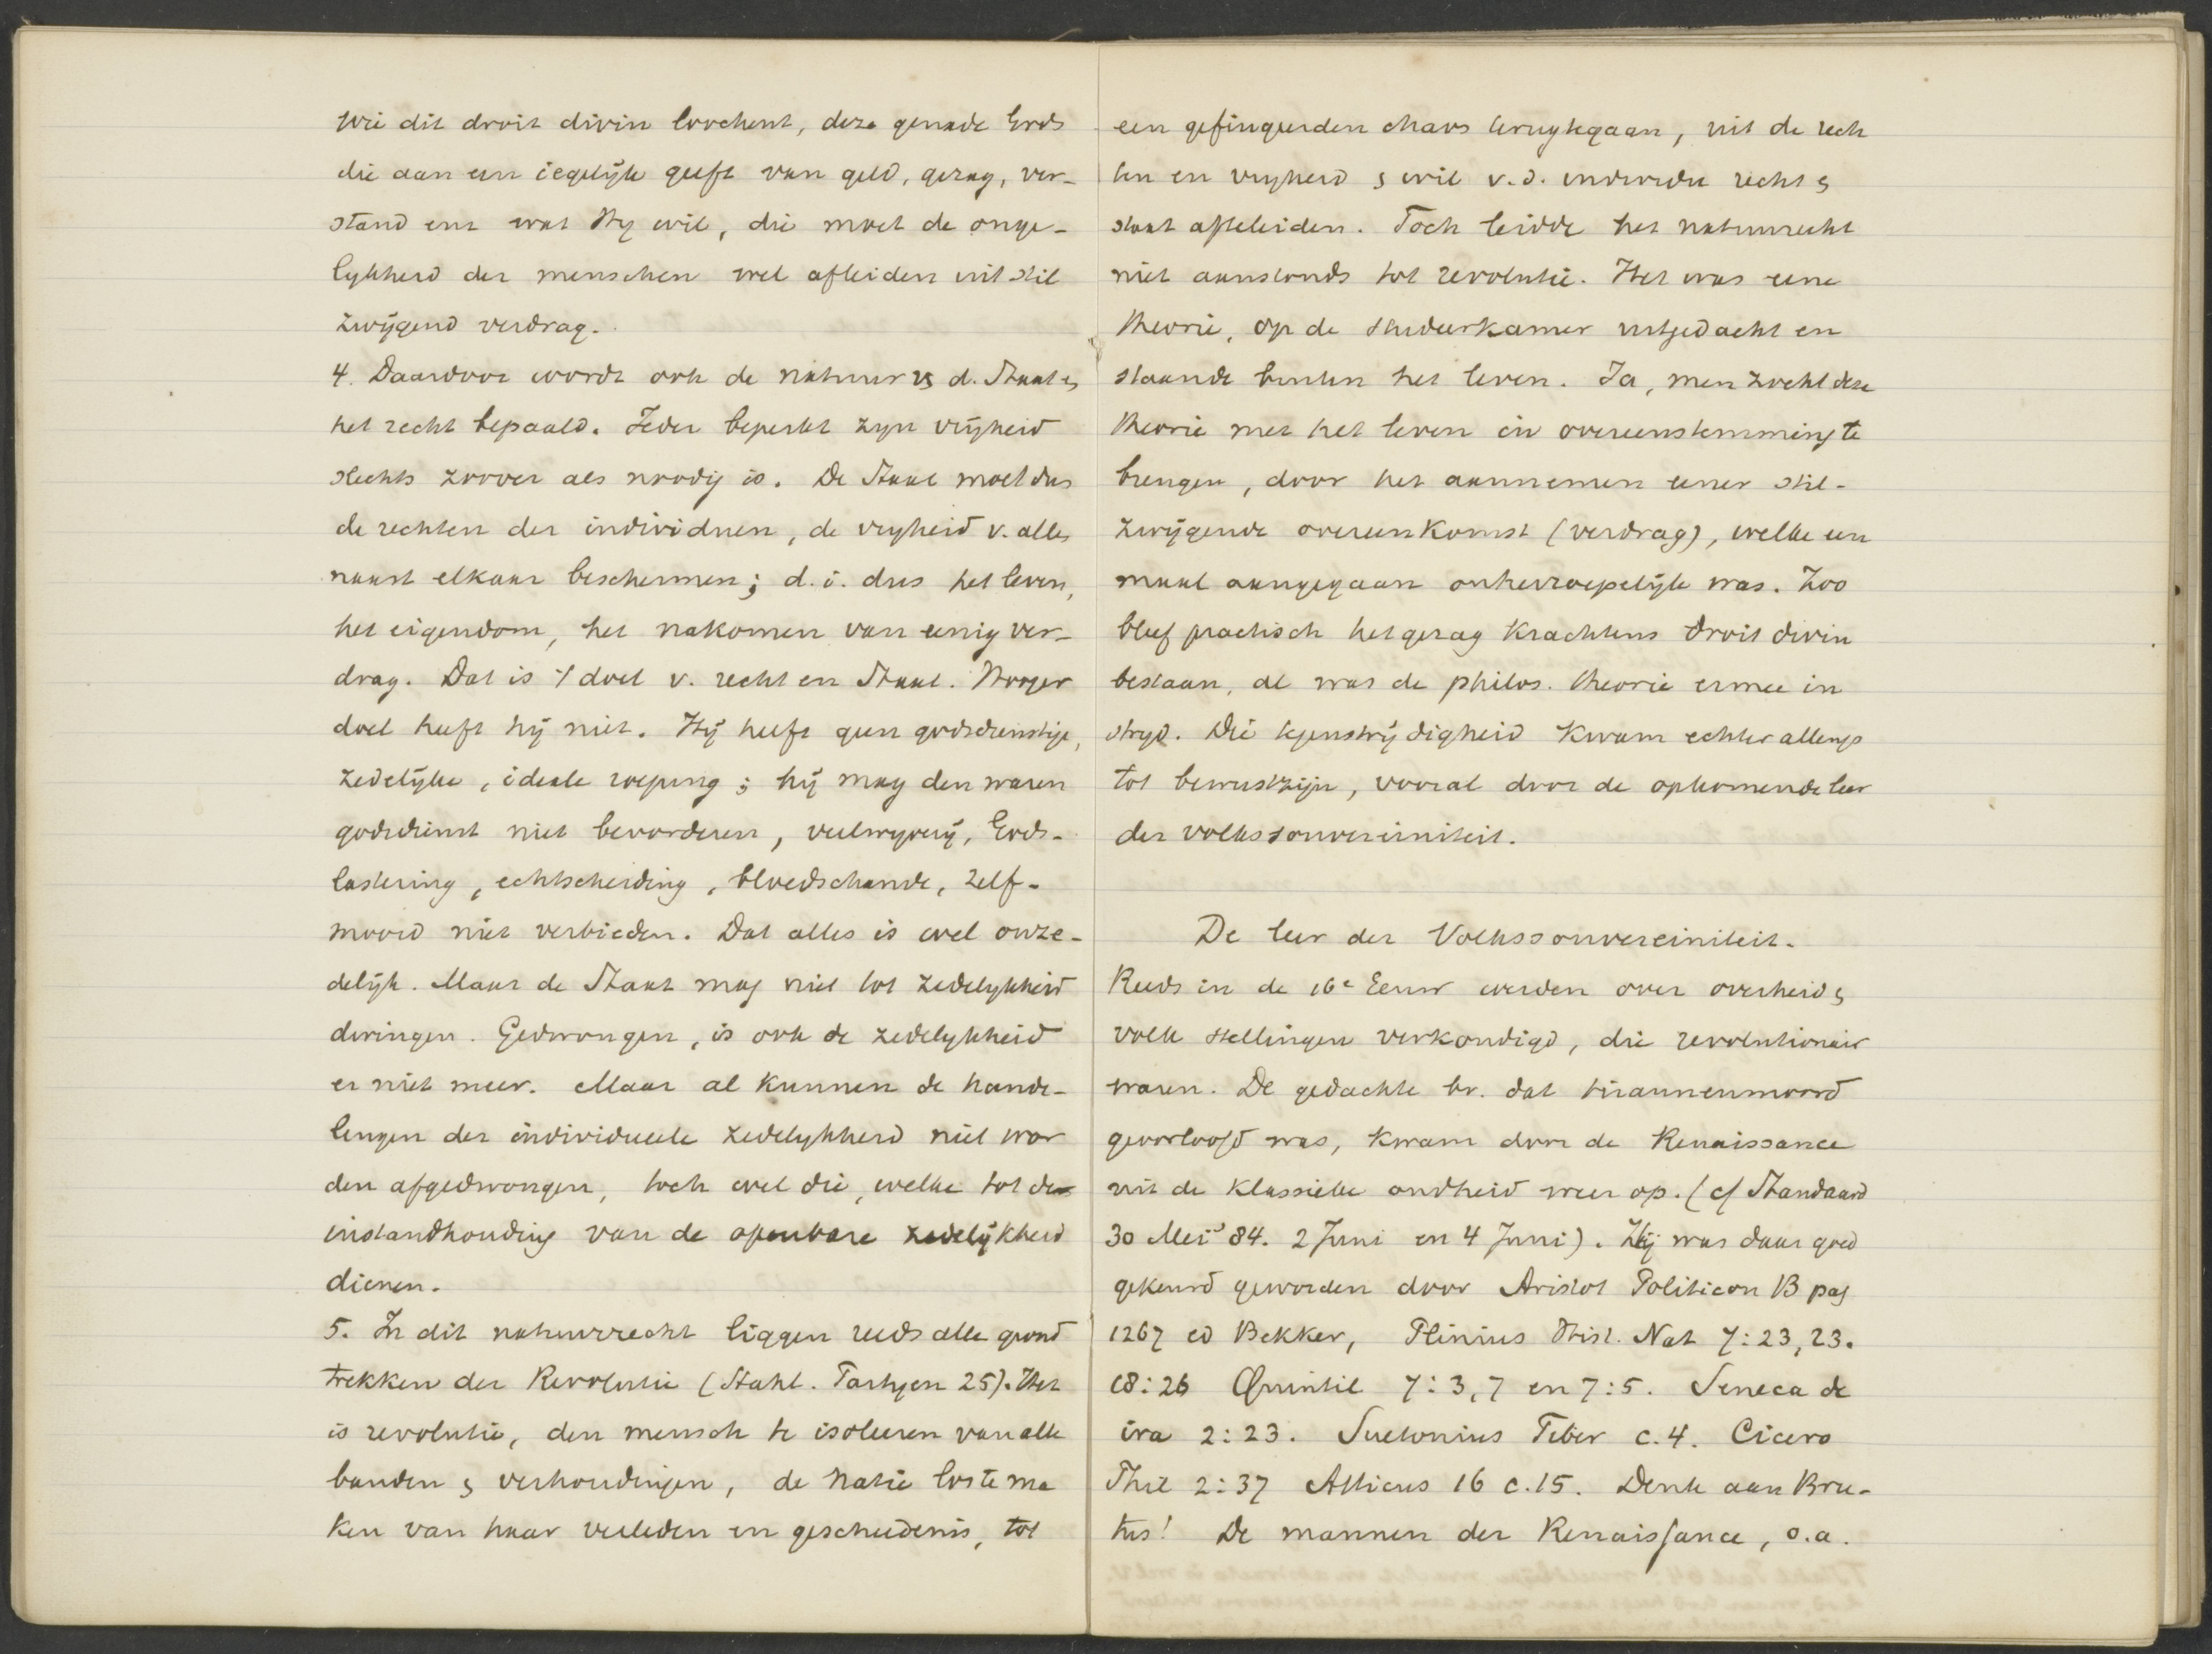 Wie dit droit divin loochent, deze genade Gods
die aan een iegelijk geeft van geld, gezag, ver-
stand enz wat Hij wil, die moet de onge-
lykheid der menschen wel afleiden uit stil
zwijgend verdrag.
4. Daardoor wordt ook de natuur v d. Staat &
het recht bepaald. Ieder beperkt zyn vrijheid
slechts zoover als noodig is. De Staat moet dus
de rechten der individuen, de vryheid v. allen
naast elkaar beschermen; d.i. dus het leven,
het eigendom, het nakomen van eenig ver-
drag. Dat is 't doel v. recht en Staat. Hooger
doel heeft hij niet. Hij heeft geen godsdienstige,
zedelijke, ideale roeping; hij mag den waren
godsdienst niet bevorderen, veelwyverij, Gods-
lastering, echtscheiding, bloedschande, zelf-
moord niet verbieden. Dat alles is wel onze-
delijk. Maar de Staat mag niet tot zedelykheid
dwingen. Gedwongen, is ook de zedelykheid
er niet meer. Maar al kunnen de hande-
lingen der individueele zedelykheid niet wor
den afgedwongen, toch wel die, welke tot de
instandhouding van de openbare zedelijkheid
dienen.
5. In dit natuurrecht liggen reeds alle grond
trekken der Revolutie (Stahl. Partyen 25). Het
is revolutie, den mensch te isoleeren van alle
banden & verhoudingen, de natie los te ma
ken van haar verleden en geschiedenis, tot
een gefingeerden chaos terugtegaan, uit de rech
ten en vryheid & wil v.d. individu recht &
staat afteleiden. Toch leidde het natuurrecht
niet aanstonds tot revolutie. Het was eene
theorie, op de studeerkamer uitgedacht en
staande buiten het leven. Ja, men zocht deze
theorie met het leven in overeenstemming te
brengen, door het aannemen eener stil-
zwijgende overeenkomst (verdrag), welke een
maal aangegaan onherroepelijk was. Zoo
bleef practisch het gezag krachtens droit divin
bestaan, al was de philos. theorie ermee in
stryd. Die tegenstrijdigheid kwam echter allengs
tot bewustzijn, vooral door de opkomende leer
der volkssouvereiniteit.
De leer der Volkssouvereiniteit.
Reeds in de 16e Eeuw werden over overheid &
volk stellingen verkondigd, die revolutionair
waren. De gedachte bv. dat tirannenmoord
geoorloofd was, kwam door de Renaissance
uit de klassieke oudheid weer op. (cf Standaard
30 Mei 84. 2 Juni en 4 Juni). Zij was daar goed
gekeurd geworden door Aristot Politicon B pag
1267 ed Bekker, Plinius Hist. Nat 7:23, 23.
18:26 Quintil 7:3,7 en 7:5. Seneca de
ira 2:23. Suetonius Tiber c.4. Cicero
Phil 2:37 Atticus 16 c.15. Denk aan Bru-
tus! De mannen der Renaissance, o.a.